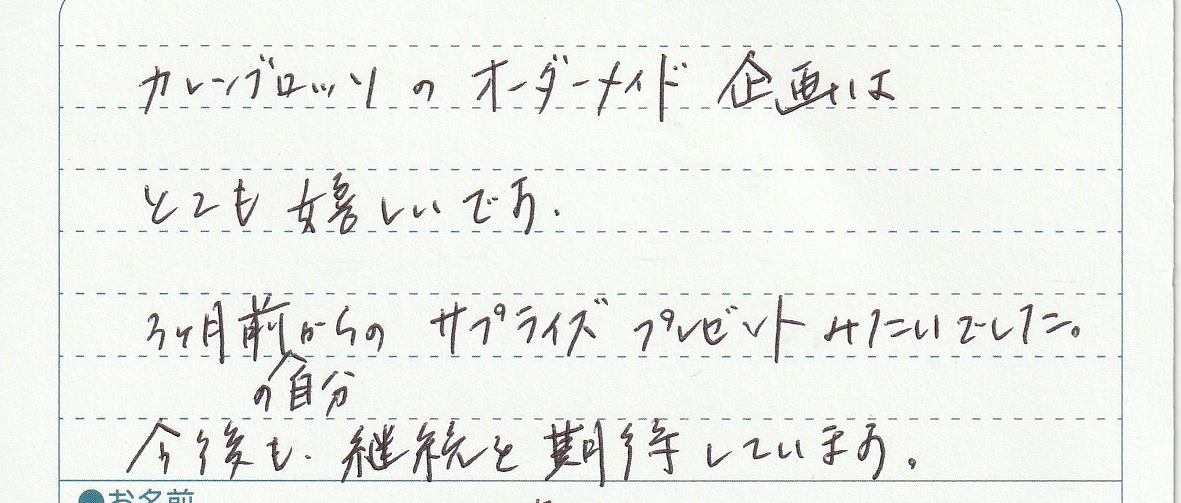 カレンブロッソのオーダーメイド企画は
とても嬉しいです.
3ヶ月前からのサプライズプレゼントみたいでした。
の自分
今後も.継続を期待しています。
●お名前